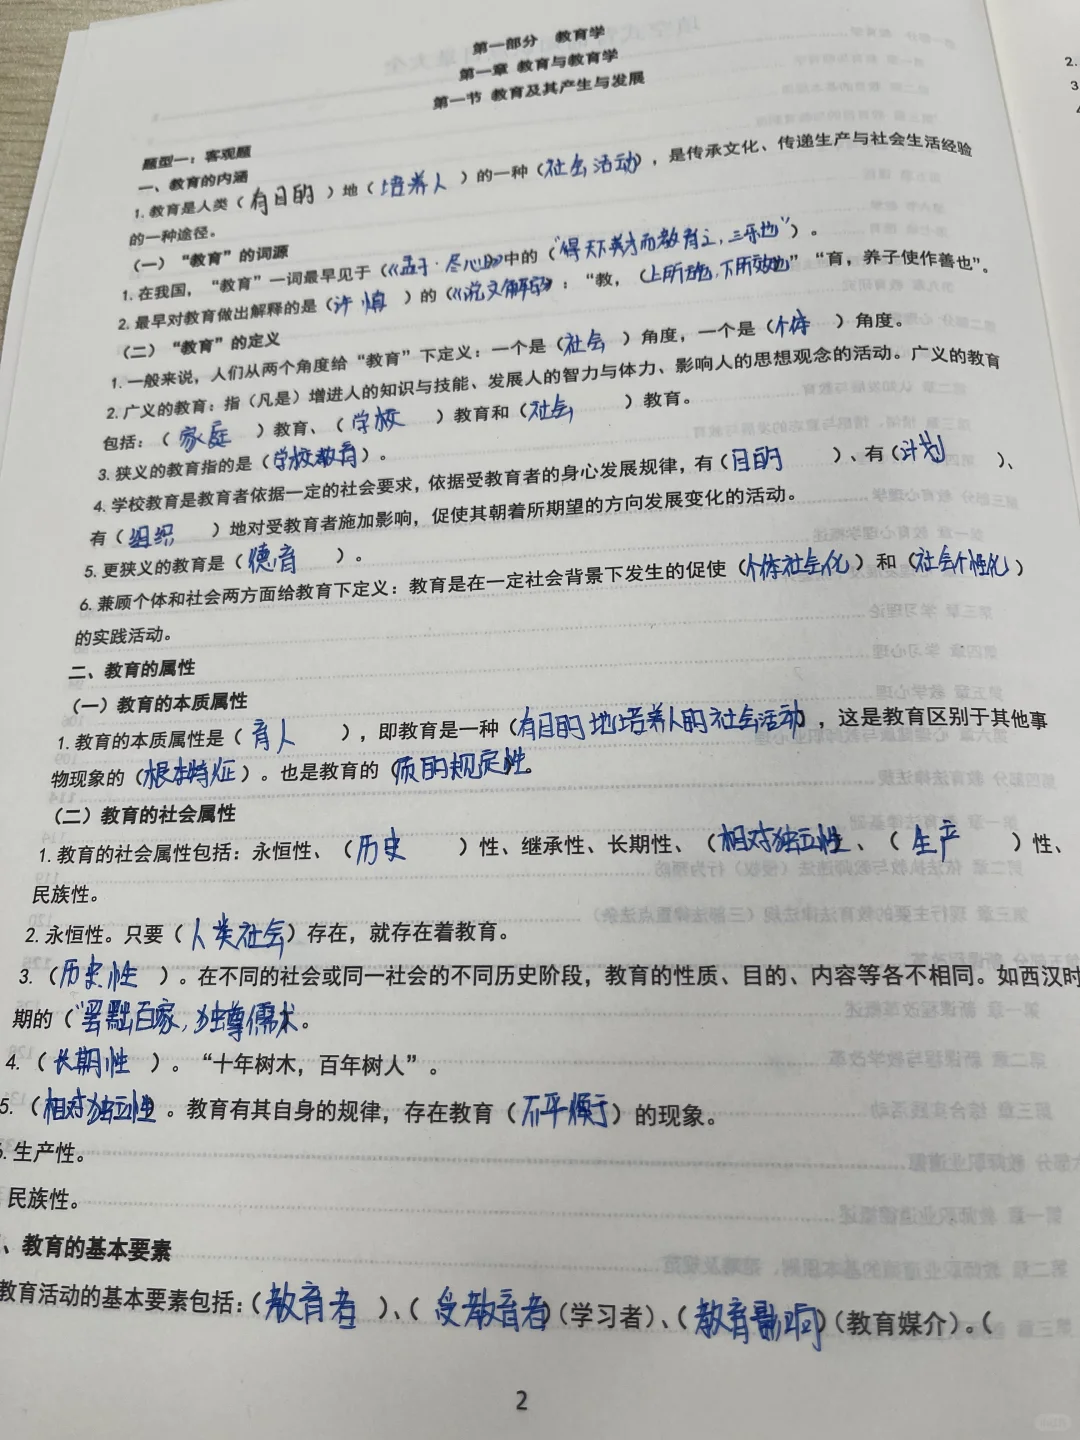 第一部分 教育学
第一章 教育与教育学
第一节 教育及其产生与发展
题型一：客观题
一、教育的内涵
1. 教育是人类（有目的）地（培养人）的一种（社会活动），是传承文化、传递生产与社会生活经验
的一种途径。
（一）“教育”的词源
1. 在我国，“教育”一词最早见于（《孟子·尽心上》）中的（“得天下英才而教育之，三乐也”）。
2. 最早对教育做出解释的是（许慎）的（《说文解字》）：“教，（上所施，下所效也）”“育，养子使作善也”。
（二）“教育”的定义
1. 一般来说，人们从两个角度给“教育”下定义：一个是（社会）角度，一个是（个体）角度。
2. 广义的教育：指（凡是）增进人的知识与技能、发展人的智力与体力、影响人的思想观念的活动。广义的教育
包括：（家庭）教育、（学校）教育和（社会）教育。
3. 狭义的教育指的是（学校教育）。
4. 学校教育是教育者依据一定的社会要求，依据受教育者的身心发展规律，有（目的）、有（计划）、
有（组织）地对受教育者施加影响，促使其朝着所期望的方向发展变化的活动。
5. 更狭义的教育是（德育）。
6. 兼顾个体和社会两方面给教育下定义：教育是在一定社会背景下发生的促使（个体社会化）和（社会个性化）
的实践活动。
二、教育的属性
（一）教育的本质属性
1. 教育的本质属性是（育人），即教育是一种（有目的地培养人的社会活动，这是教育区别于其他事
物现象的（根本特征）。也是教育的（质的规定性。
（二）教育的社会属性
1. 教育的社会属性包括：永恒性、（历史）性、继承性、长期性、（相对独立性、（生产）性、
民族性。
2. 永恒性。只要（人类社会）存在，就存在着教育。
3.（历史性）。在不同的社会或同一社会的不同历史阶段，教育的性质、目的、内容等各不相同。如西汉时
期的（“罢黜百家，独尊儒术。
4.（长期性）。“十年树木，百年树人”。
5.（相对独立性）。教育有其自身的规律，存在教育（不平衡于）的现象。
6. 生产性。
民族性。
、教育的基本要素
教育活动的基本要素包括：（教育者）、（受教育者）（学习者）、（教育影响）（教育媒介）。（
2